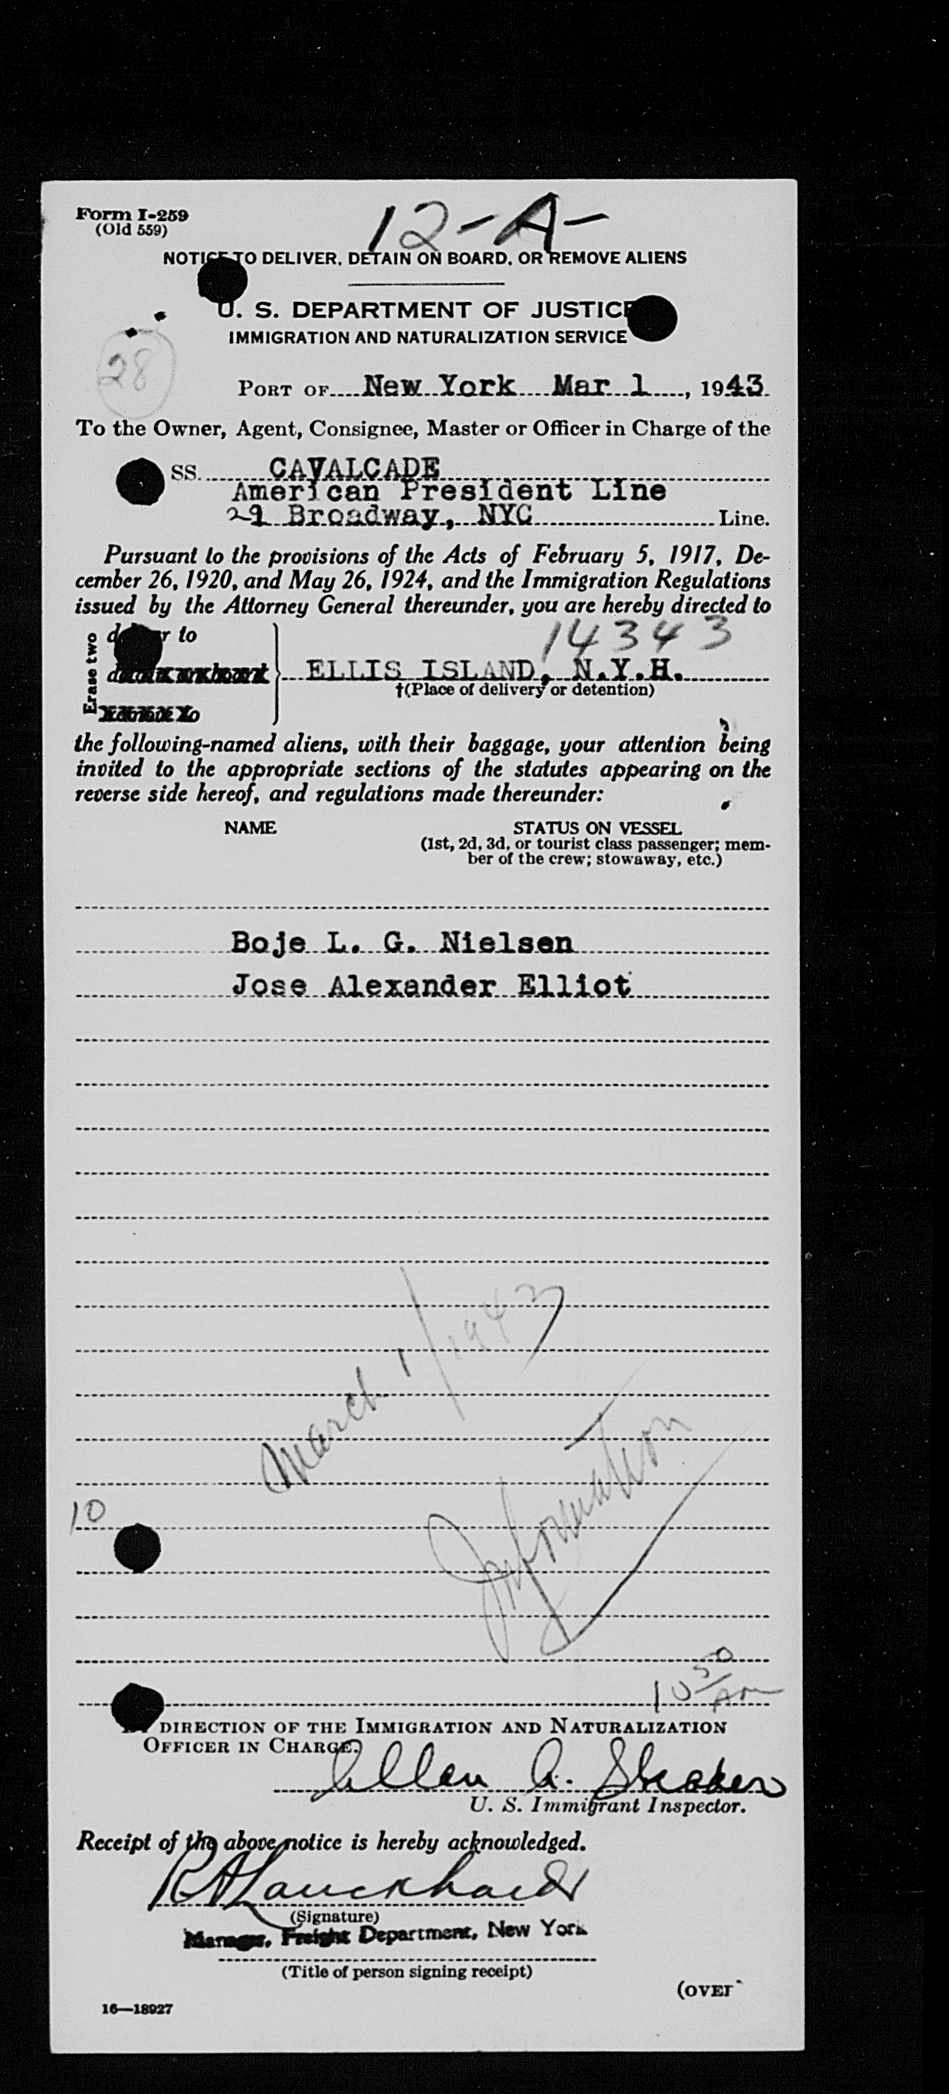 Form I-259
(Old 559)
12-A-
NOTICE TO DELIVER, DETAIN ON BOARD, OR REMOVE ALIENS
U. S. DEPARTMENT OF JUSTICE
IMMIGRATION AND NATURALIZATION SERVICE
28
PORT OF New York Mar 1, 1943
To the Owner, Agent, Consignee, Master or Officer in Charge of the
SS. CAVALCADE
American President Line
29 Broadway, NYC Line.
Pursuant to the provisions of the Acts of February 5, 1917, De-
cember 26, 1920, and May 26, 1924, and the Immigration Regulations
issued by the Attorney General thereunder, you are hereby directed to
14343
Erase two
deliver to
ELLIS ISLAND, N.Y.H.
†(Place of delivery or detention)
the following-named aliens, with their baggage, your attention being
invited to the appropriate sections of the statutes appearing on the
reverse side hereof, and regulations made thereunder:
NAME STATUS ON VESSEL
(1st, 2d, 3d, or tourist class passenger; mem-
ber of the crew; stowaway, etc.)
Boje L. G. Nielsen
Jose Alexander Elliot
March 1/1943
Information
10
10 50/AM
DIRECTION OF THE IMMIGRATION AND NATURALIZATION
OFFICER IN CHARGE.
Allen A.
U. S. Immigrant Inspector.
Receipt of the above notice is hereby acknowledged.
R A Lauckhardt
(Signature)
Manager, Freight Department, New York
(Title of person signing receipt)
(OVER
16—18927